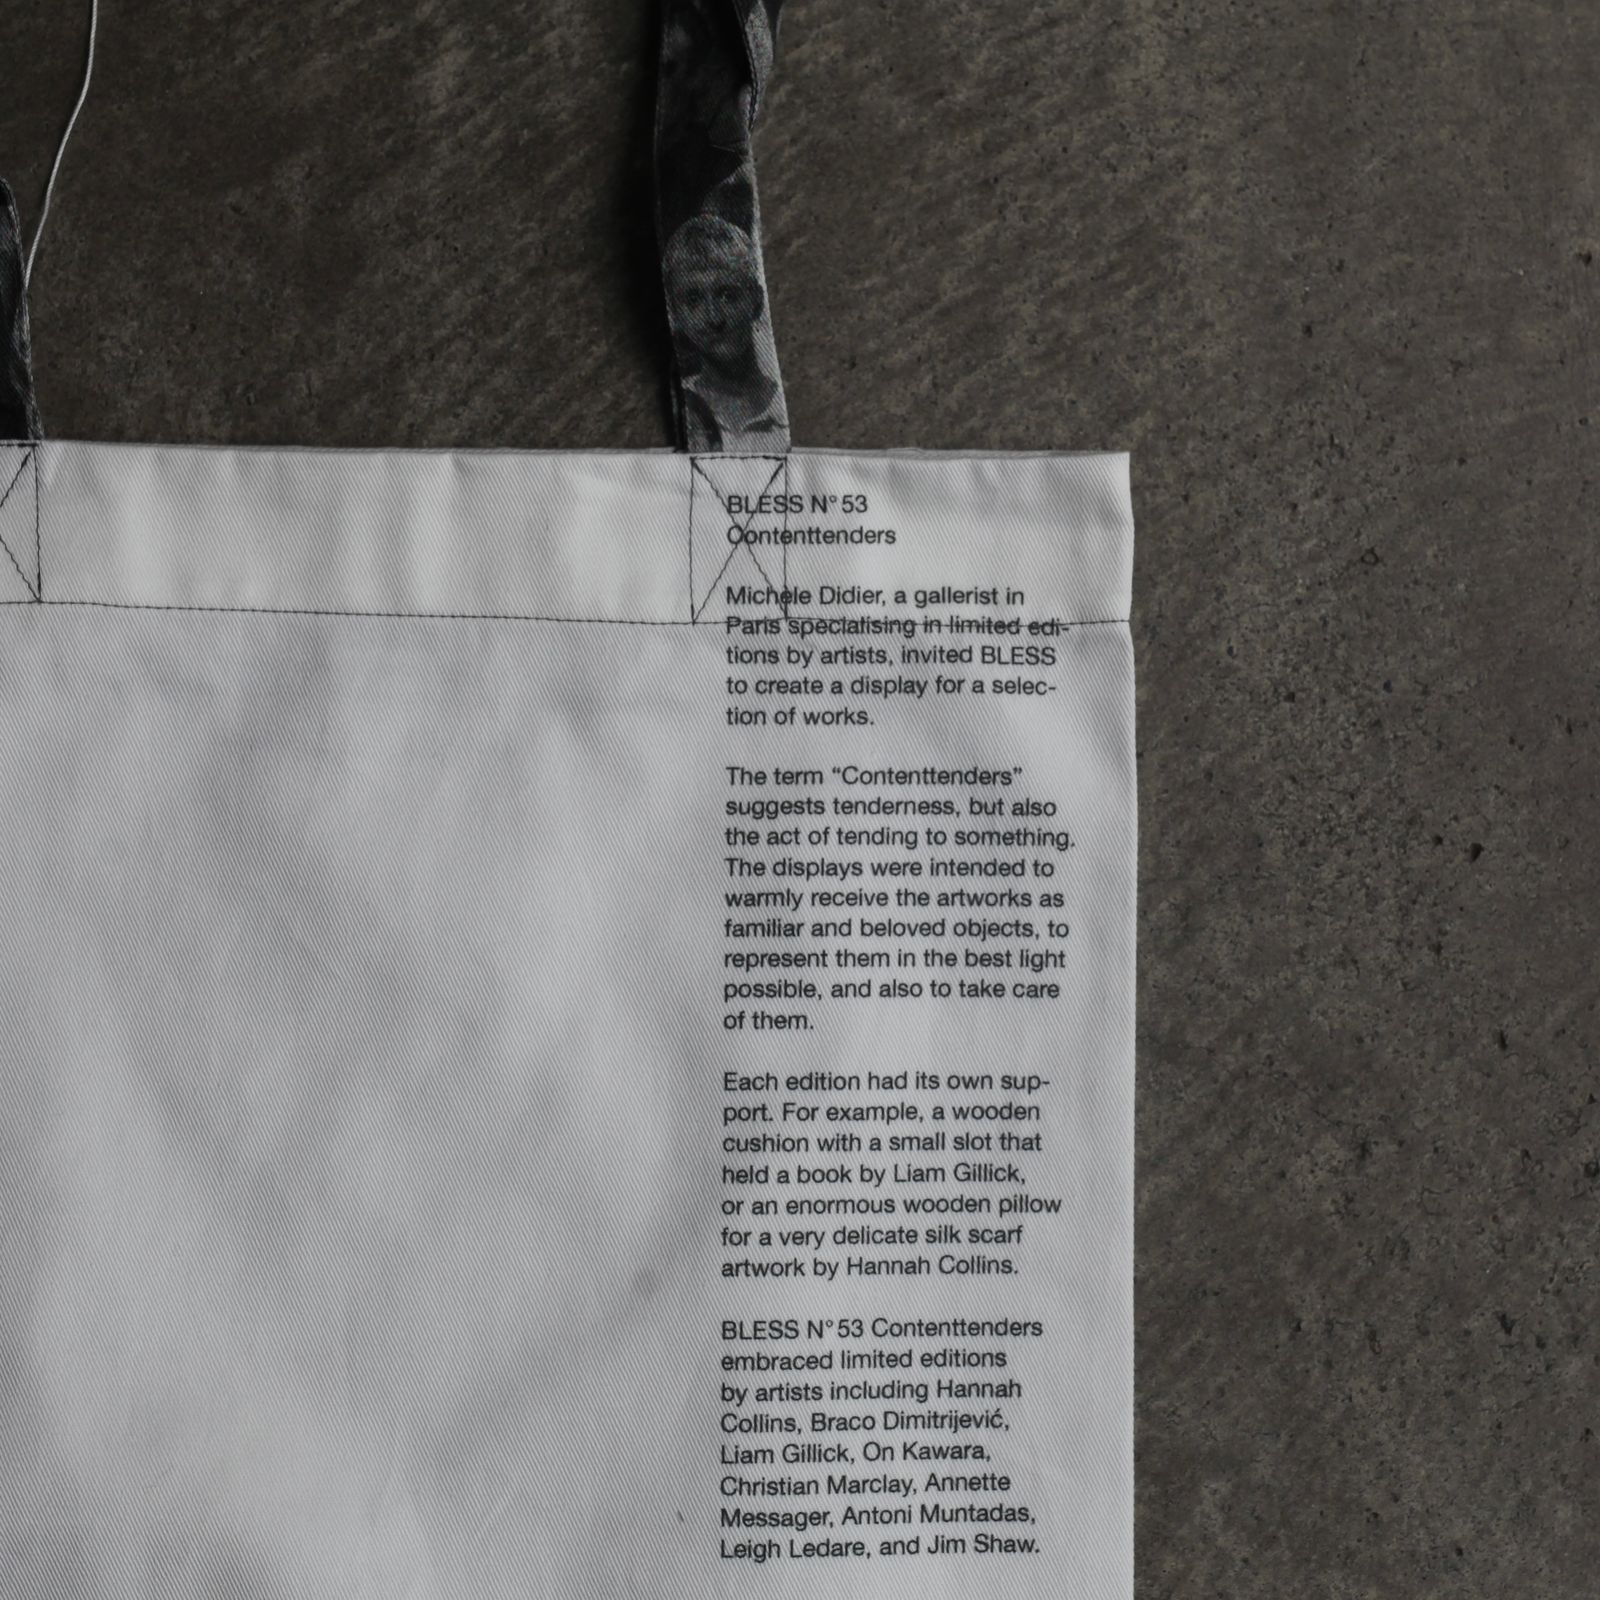 BLESS N° 53
Contenttenders
Michèle Didier, a gallerist in
Paris specialising in limited edi-
tions by artists, invited BLESS
to create a display for a selec-
tion of works.
The term “Contenttenders”
suggests tenderness, but also
the act of tending to something.
The displays were intended to
warmly receive the artworks as
familiar and beloved objects, to
represent them in the best light
possible, and also to take care
of them.
Each edition had its own sup-
port. For example, a wooden
cushion with a small slot that
held a book by Liam Gillick,
or an enormous wooden pillow
for a very delicate silk scarf
artwork by Hannah Collins.
BLESS N° 53 Contenttenders
embraced limited editions
by artists including Hannah
Collins, Braco Dimitrijević,
Liam Gillick, On Kawara,
Christian Marclay, Annette
Messager, Antoni Muntadas,
Leigh Ledare, and Jim Shaw.